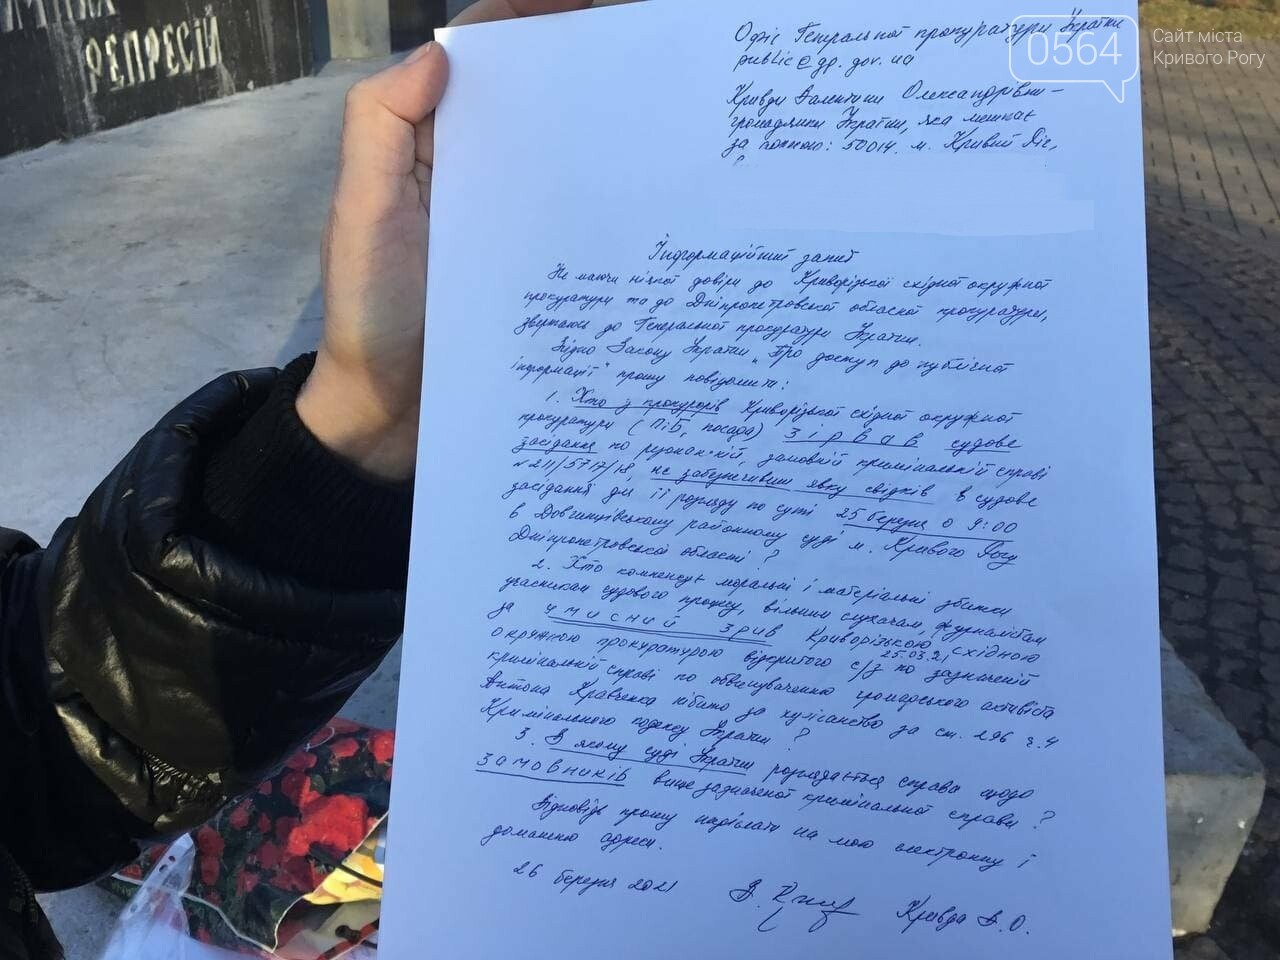 РЕПРЕСІЙ
0564
Сайт міста
Кривого Рогу
Офіс Генеральної прокуратури України
public@gp.gov.ua
Кривди Валентини Олександрівни –
громадянки України, яка мешкає
за адресою: 50014. м. Кривий Ріг,
Інформаційний запит
Не маючи ніякої довіри до Криворізької східної окружної
прокуратури та до Дніпропетровської обласної прокуратури,
звертаюсь до Генеральної прокуратури України.
Згідно Закону України „Про доступ до публічної
інформації" прошу повідомити:
1. Хто з прокурорів Криворізької східної окружної
прокуратури (ПіБ, посада) зірвав судове
засідання по резонансній, замовній кримінальній справі
№211/5717/18, не забезпечивши явку свідків в судове
засідання для її розгляду по суті 25 березня о 9:00
в Довгинцівському районному суді м. Кривого Рогу
Дніпропетровської області?
2. Хто компенсує моральні і матеріальні збитки
учасникам судового процесу, вільним слухачам, журналістам
за умисний зрив Криворізькою східною
окружною прокуратурою відкритого с/з 25.03.21 по зазначеній
кримінальній справі по обвинуваченню громадського активіста
Антона Кравченка нібито за хуліганство за ст. 296 ч.4
Кримінального кодексу України?
3. В якому суді України розглядається справа щодо
замовників вище зазначеної кримінальної справи?
Відповідь прошу надіслати на мою електронну і
домашню адреси.
26 березня 2021
Кривда В.О.